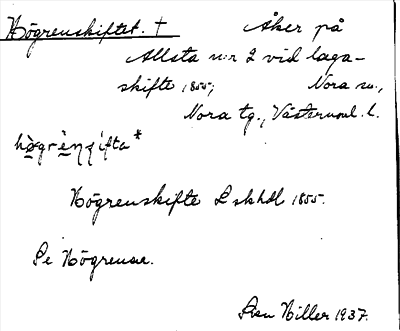 Högrenskiftet. † Åker på
Allsta nr 2 vid laga-
skifte 1855, Nora sn.,
Nora tg., Västernorrl. l.
Högrenskifte L skhdl 1855.
Se Högrenarna.
Sven Hiller 1937.